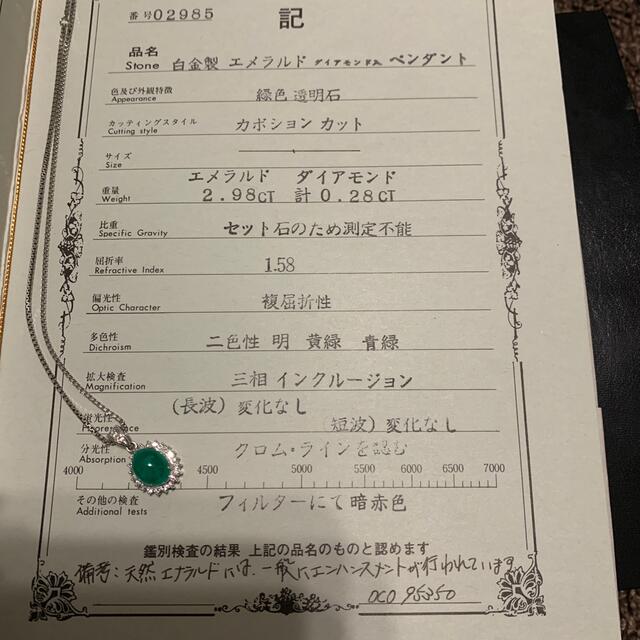 番号 02985
記
品名
Stone 白金製 エメラルド ダイアモンド入 ペンダント
色及び外観特徴
Appearance 緑色 透明石
カッティングスタイル
Cutting style カボション カット
サイズ
Size
エメラルド ダイアモンド
重量
Weight 2.98CT 計 0.28CT
比重
Specific Gravity セット石のため測定不能
屈折率
Refractive Index 1.58
偏光性
Optic Character 複屈折性
多色性
Dichroism 二色性 明 黄緑 青緑
拡大検査
Magnification 三相 インクルージョン
(長波) 変化なし
(短波) 変化なし
分光性
Absorption クロム・ラインを認む
4000 4500 5000 5500 6000 6500 7000
その他の検査
Additional tests フィルターにて 暗赤色
鑑別検査の結果 上記の品名のものと認めます
備考:天然エメラルドには、一般にエンハンスメントが行われています
OCO 95350